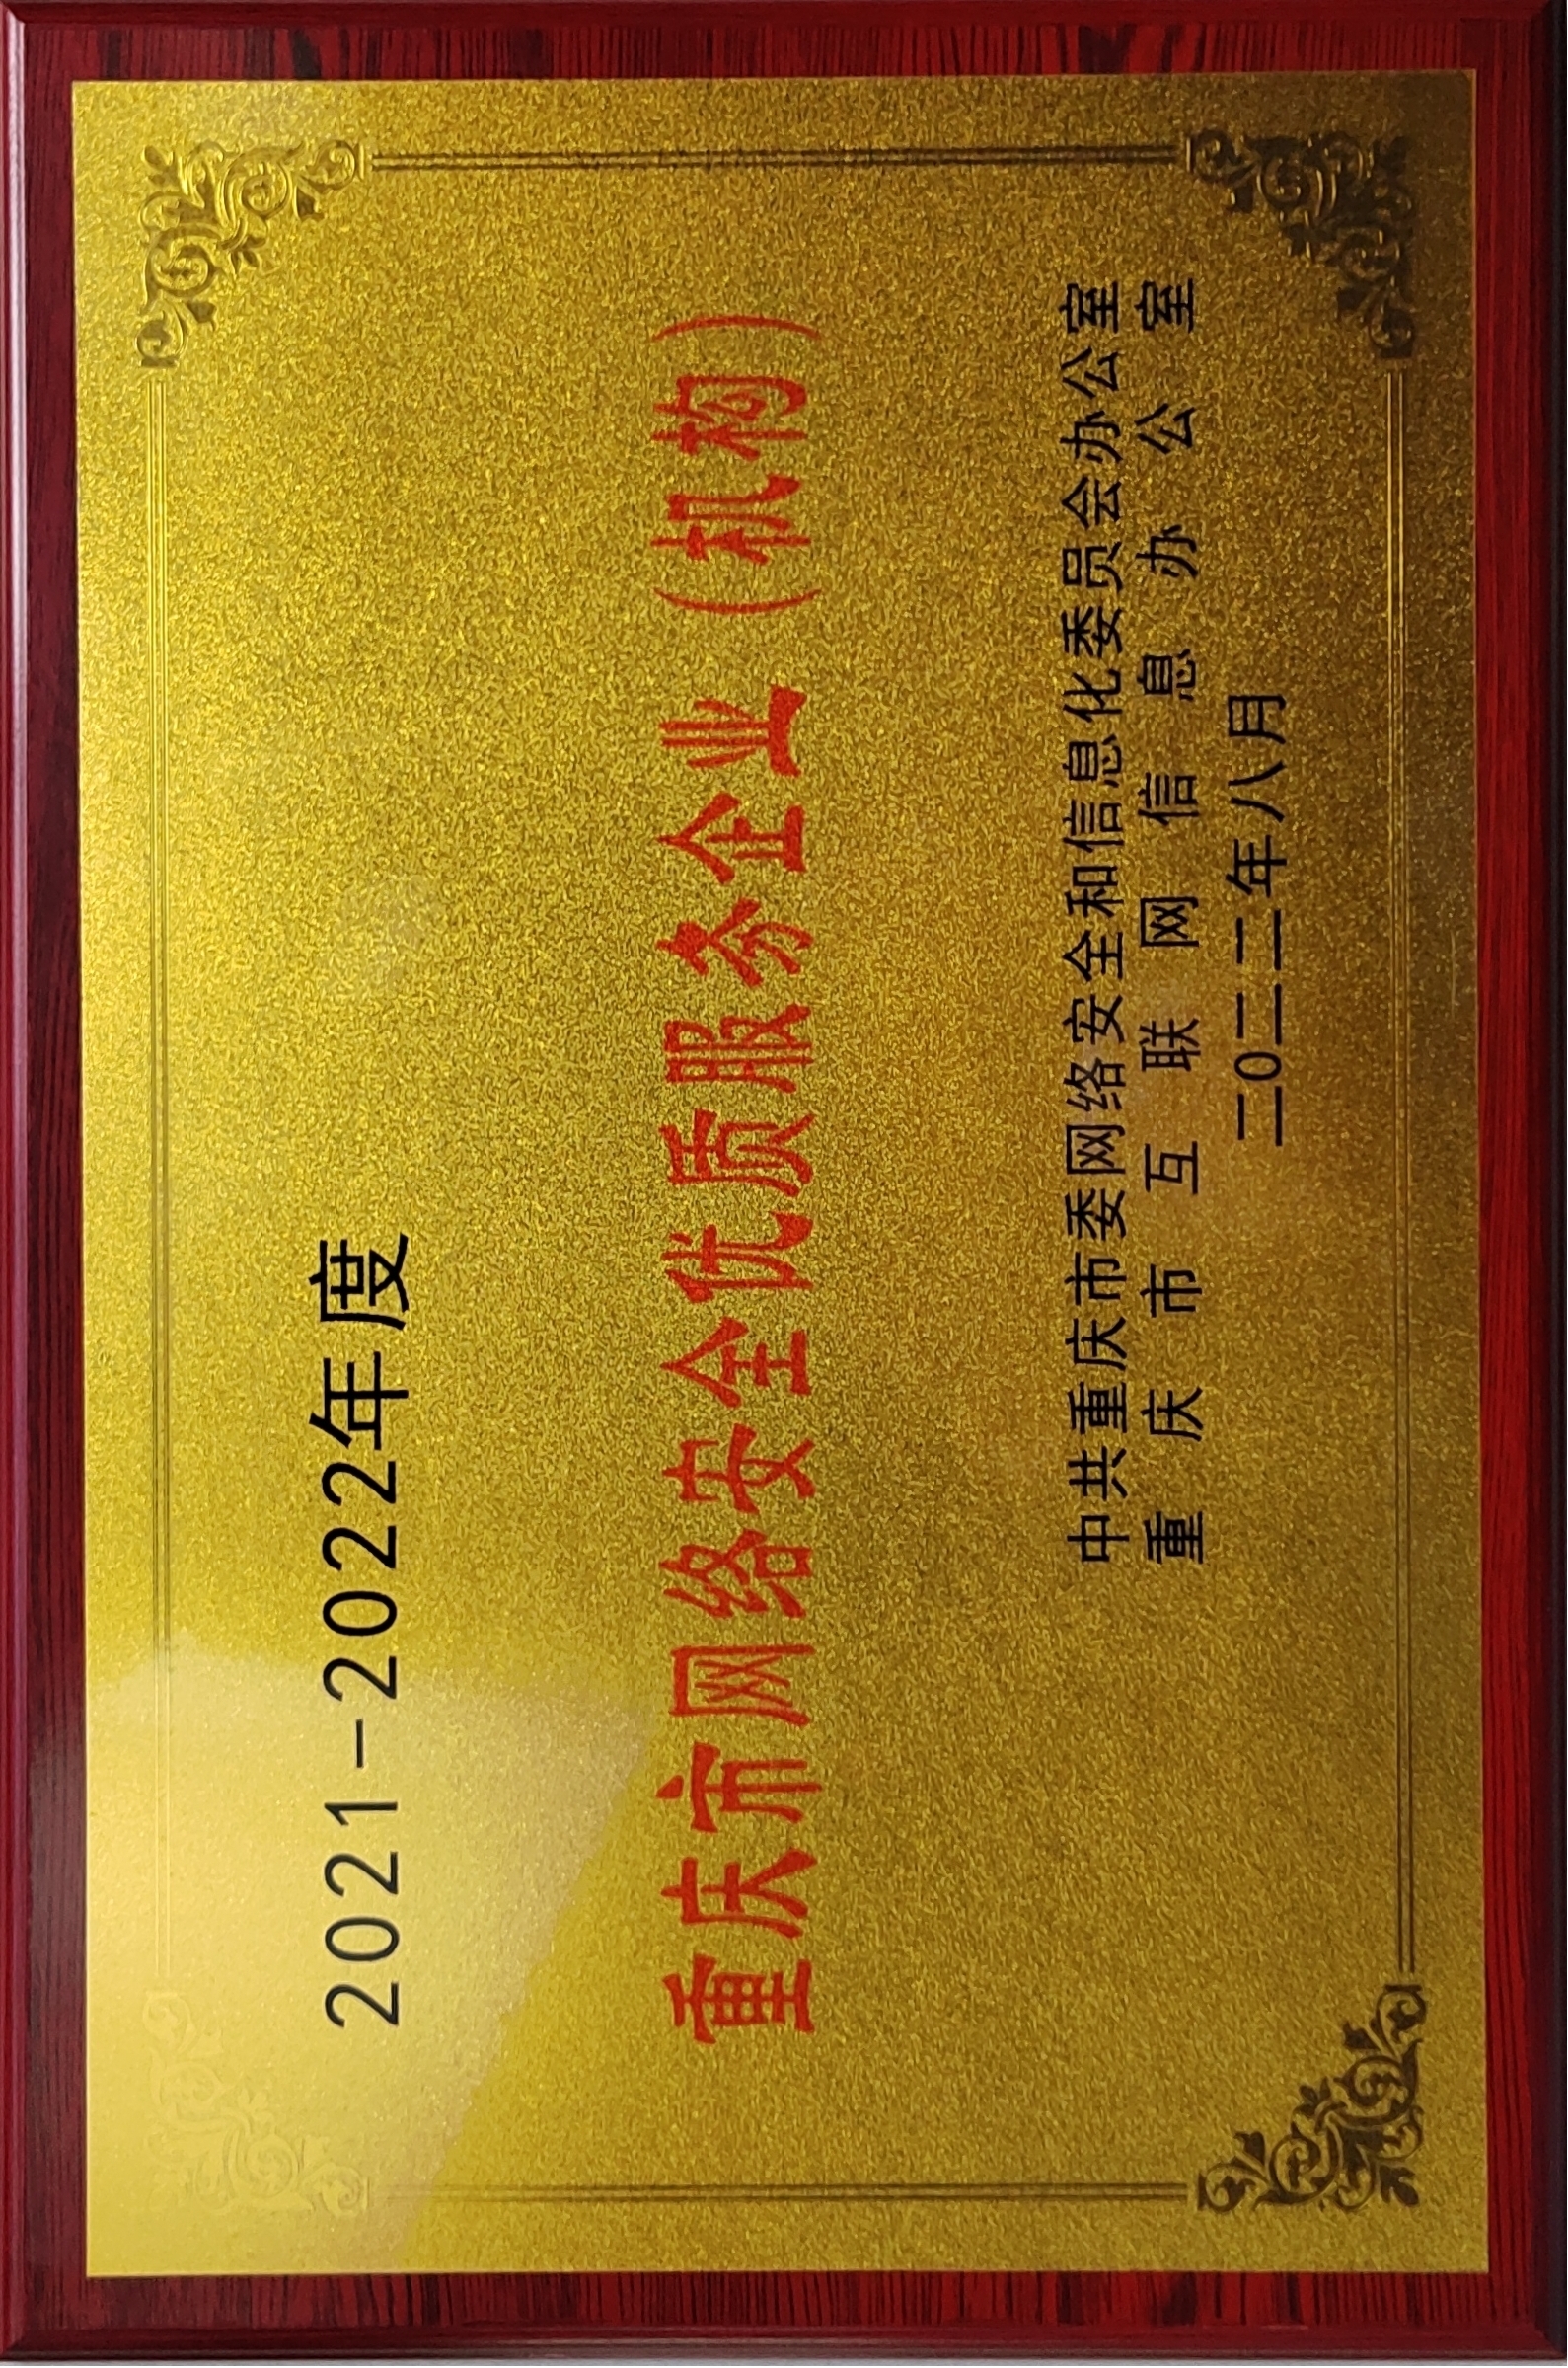 2021-2022年度
重庆市网络安全优质服务企业（机构）
中共重庆市委网络安全和信息化委员会办公室
重庆市互联网信息办公室
二0二二年八月